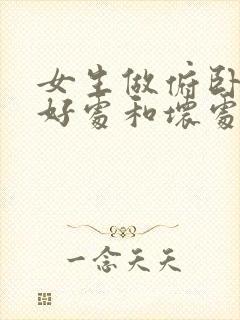 女生做俯卧
好处和坏处
一念天天